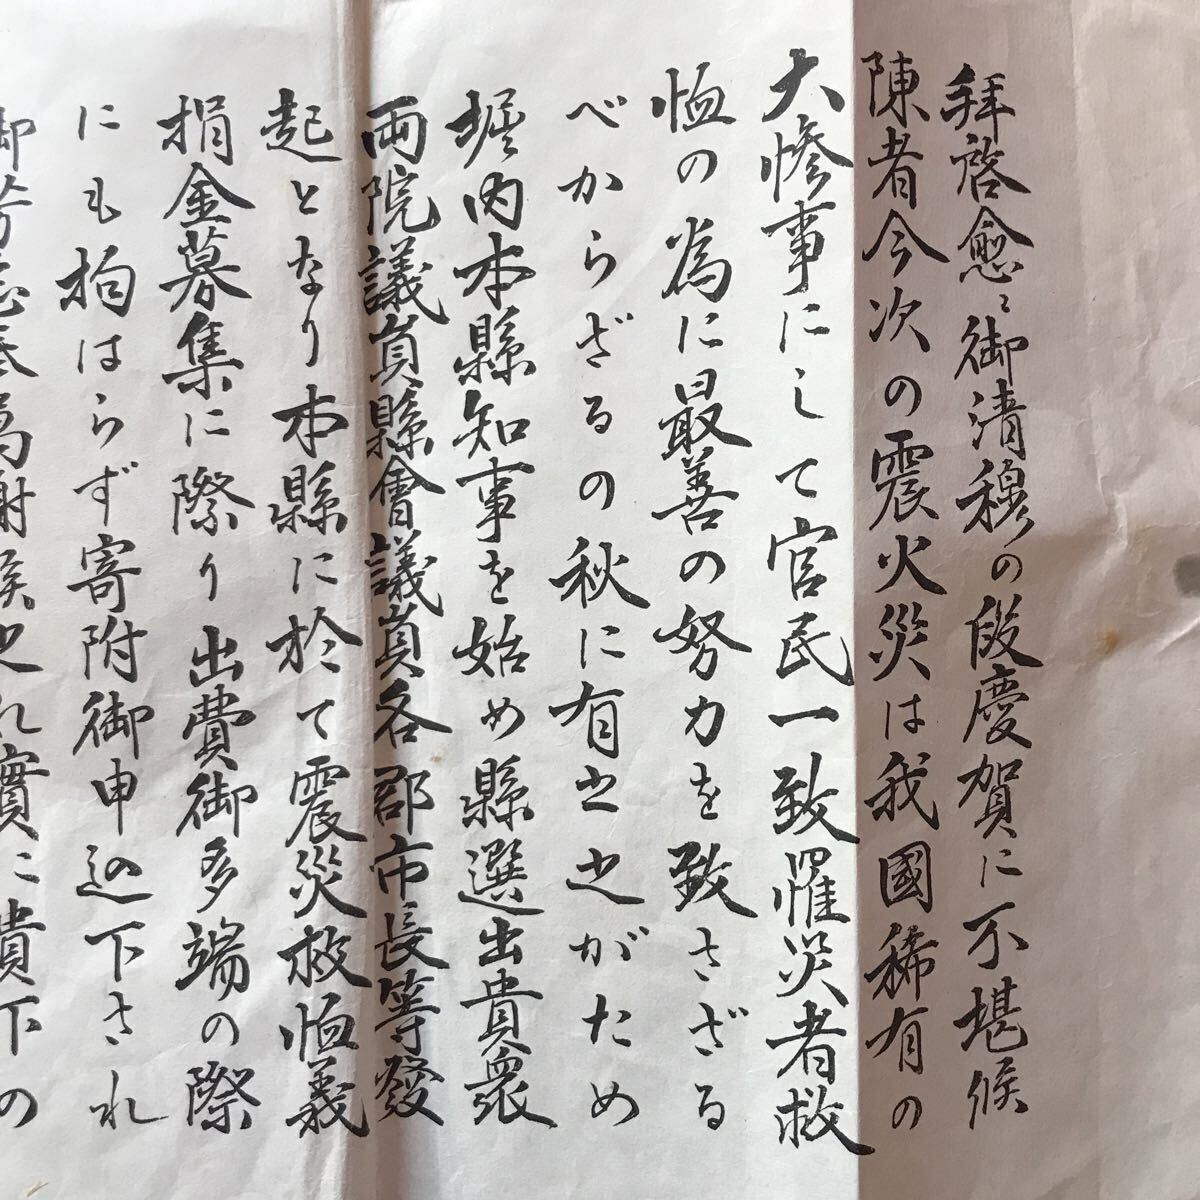 拝啓愈々御清穆の段慶賀に不堪候
陳者今次の震火災は我國稀有の
大惨事にして官民一致罹災者救
恤の為に最善の努力を致さざる
べからざるの秋に有之之がため
堀内本縣知事を始め縣選出貴衆
両院議員縣會議員各郡市長等發
起となり本縣に於て震災救恤義
捐金募集に際り出費御多端の際
にも拘はらず寄附御申込下され
御芳志奉萬謝候之れ實に貴下の